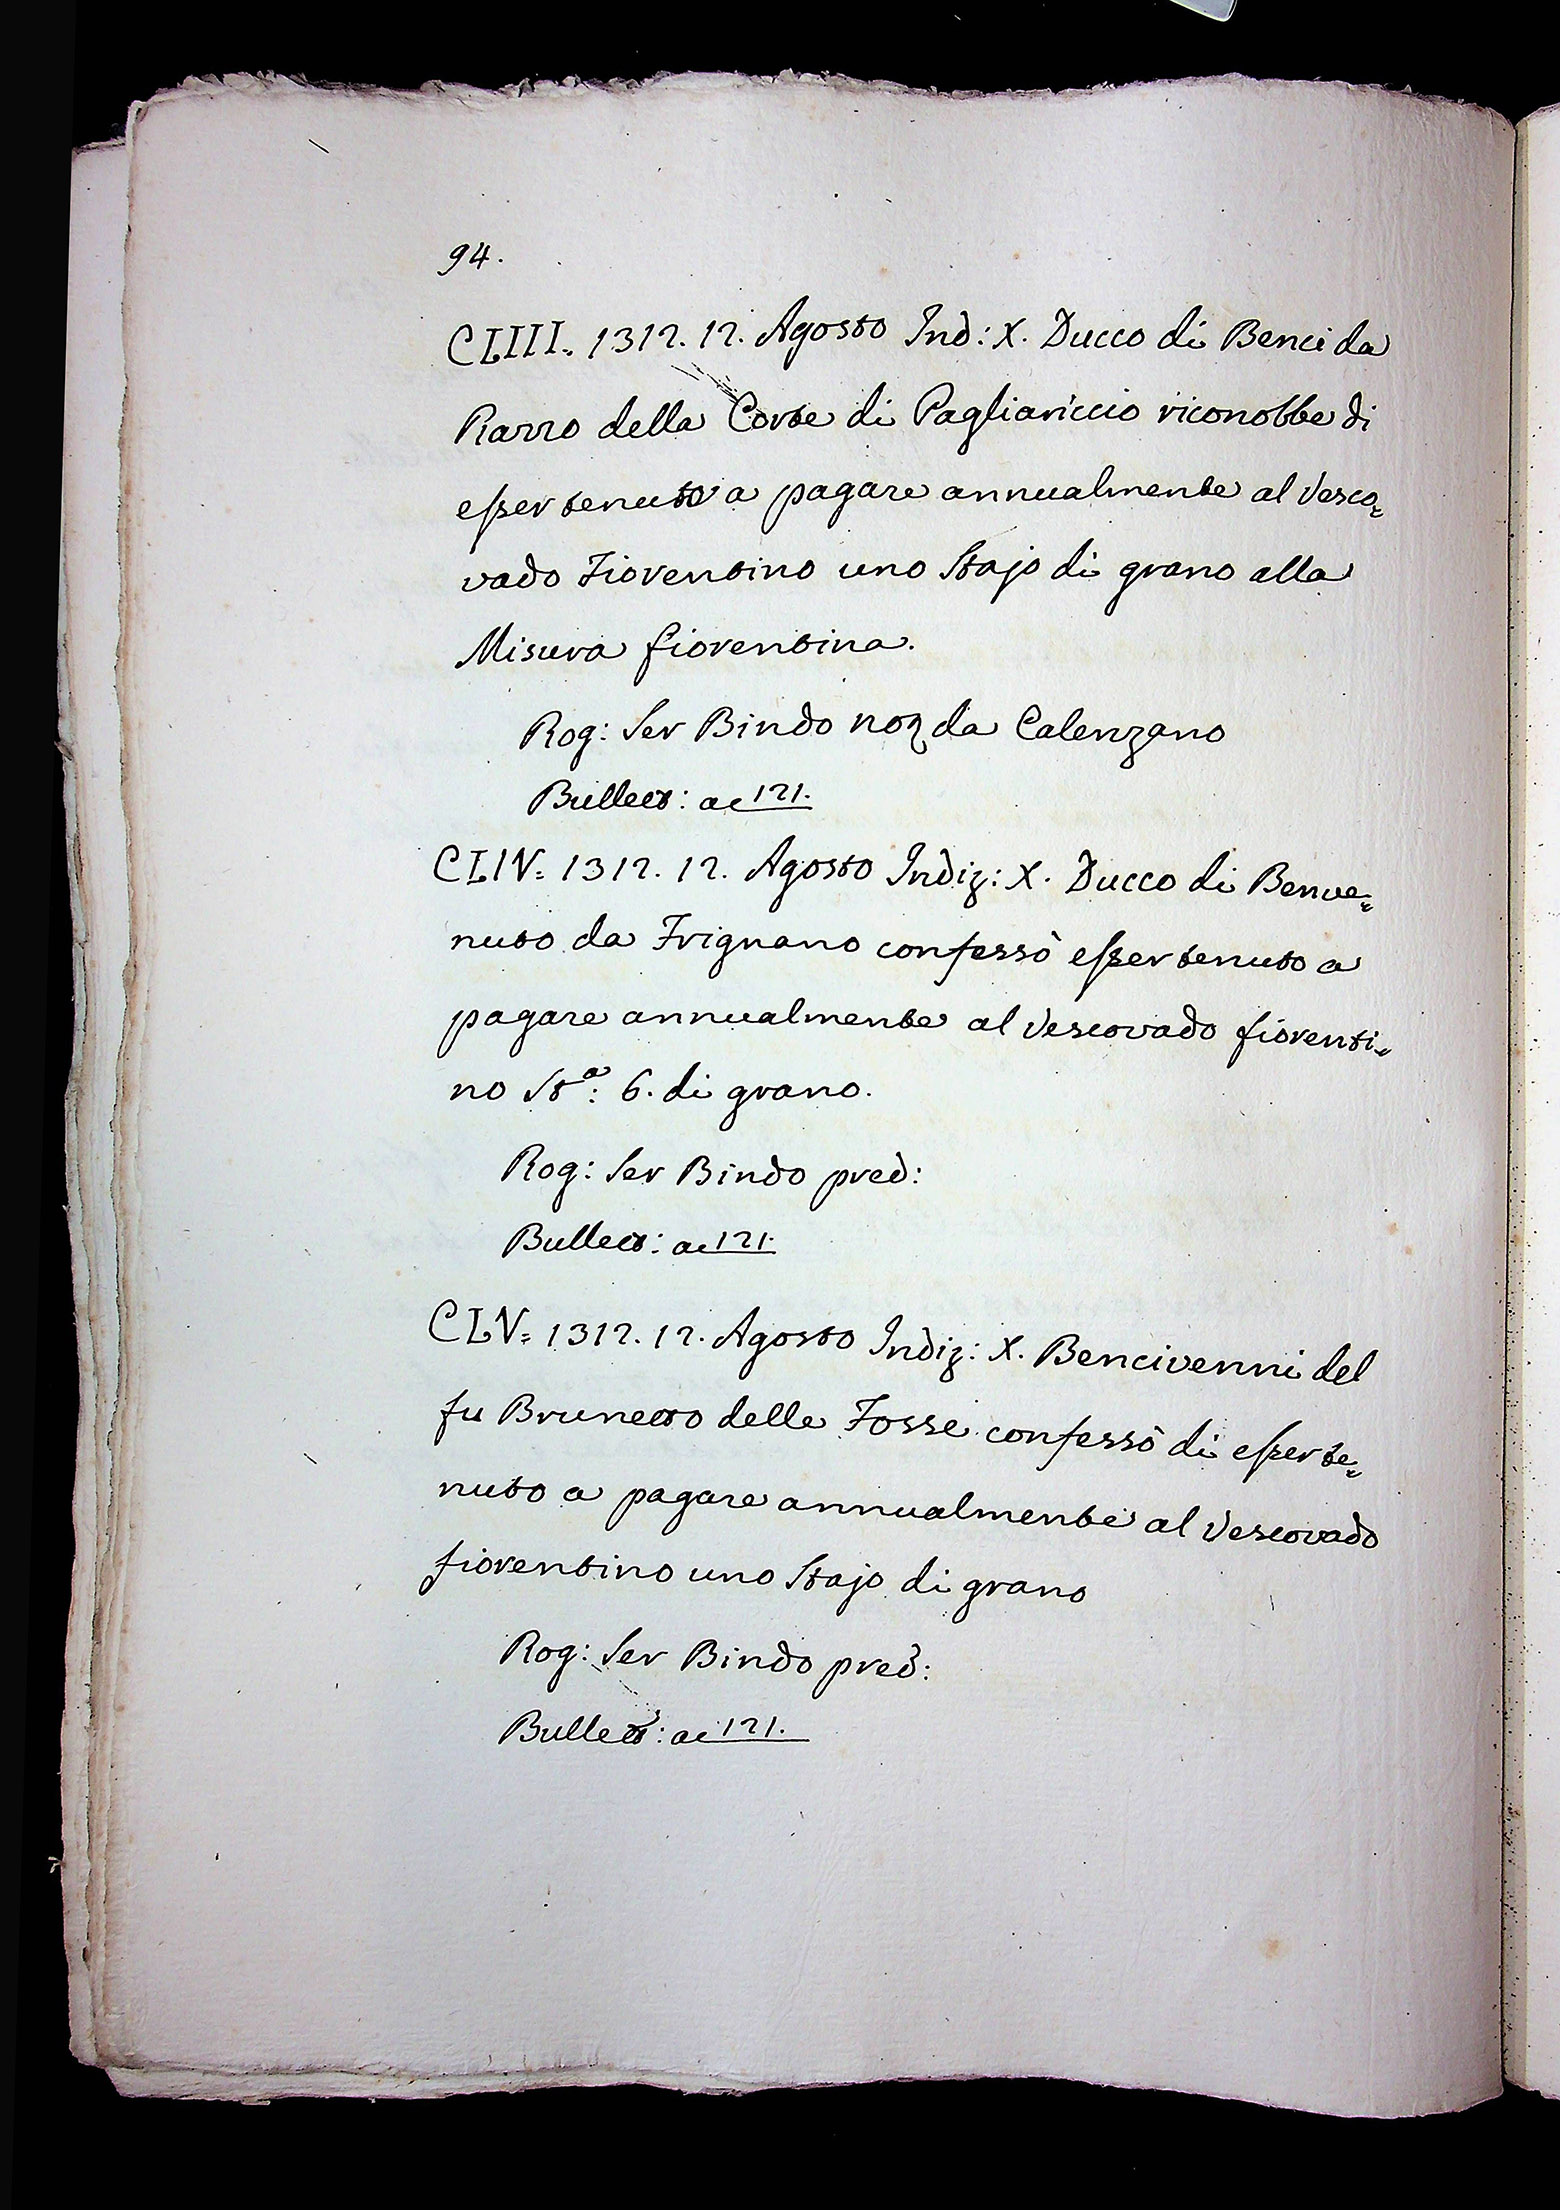 94.
CLIII. 1312. 12. Agosto Ind: X. Ducco di Benci da
Razzo della Corte di Pagliariccio riconobbe di
esser tenuto a pagare annualmente al Vesco=
vado Fiorentino uno Stajo di grano alla
Misura fiorentina.
Rog: Ser Bindo noz da Calenzano
Bullett: ac 121.
CLIV= 1312. 12. Agosto Indiz: X. Ducco di Benve=
nuto da Frignano confessò esser tenuto a
pagare annualmente al Vescovado fiorenti=
no Stª: 6. di grano.
Rog: Ser Bindo pred:
Bullett: ac 121.
CLV= 1312. 12. Agosto Indiz: X. Bencivenni del
fu Brunetto delle Fosse confessò di esser te=
nuto a pagare annualmente al Vescovado
fiorentino uno Stajo di grano
Rog: Ser Bindo pred:
Bullett: ac 121.